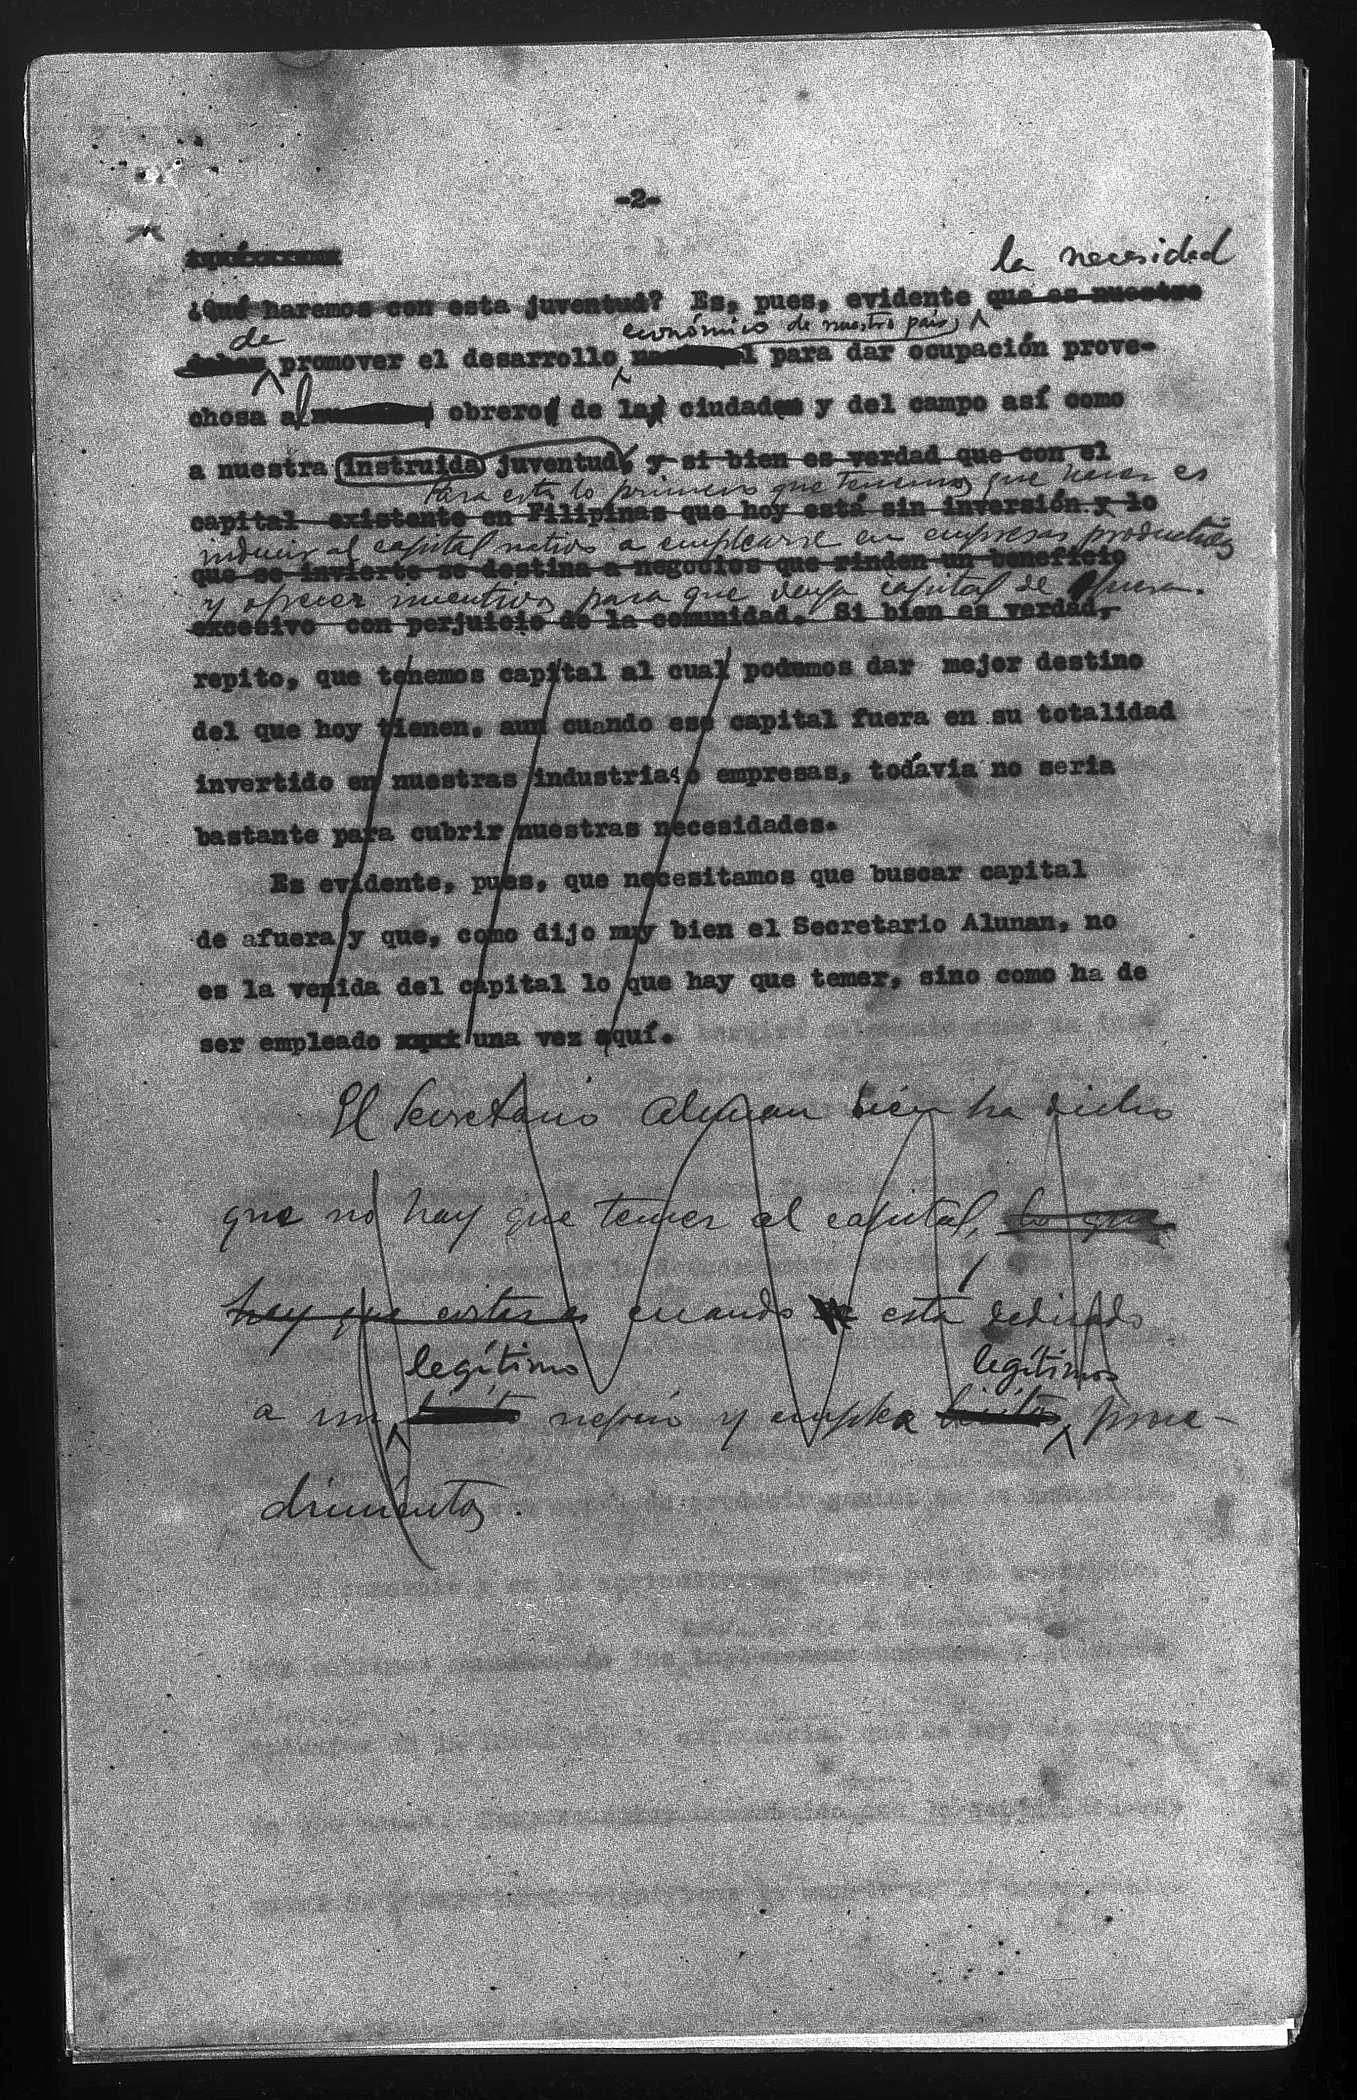 -2-
la necesidad
¿Qué haremos con esta juventud? Es, pues, evidente que es nuestro
de económico de nuestro país,
deber promover el desarrollo para dar ocupación prove-
chosa al obrero de la ciudad y del campo así como
a nuestra instruida juventud, y si bien es verdad que con el
Para esto lo primero que tenemos que hacer es
capital existente en Filipinas que hoy está sin inversión y lo
inducir al capital nativo a emplearse en empresas productivas
que se invierte se destina a negocios que rinden un beneficio
y ofrecer incentivos para que venga capital de afuera.
excesivo con perjuicio de la comunidad. Si bien es verdad,
repito, que tenemos capital al cual podemos dar mejor destino
del que hoy tienen, aun cuando ese capital fuera en su totalidad
invertido en nuestras industrias o empresas, todavía no seria
bastante para cubrir nuestras necesidades.
Es evidente, pues, que necesitamos que buscar capital
de afuera y que, como dijo muy bien el Secretario Alunan, no
es la venida del capital lo que hay que temer, sino como ha de
ser empleado una vez aquí.
El Secretario Alunan bien ha dicho
que no hay que temer al capital, lo que
hay que evitar es cuando está dedicado
legítimo legítimos
a un negocio y emplea lícitos proce-
dimientos.